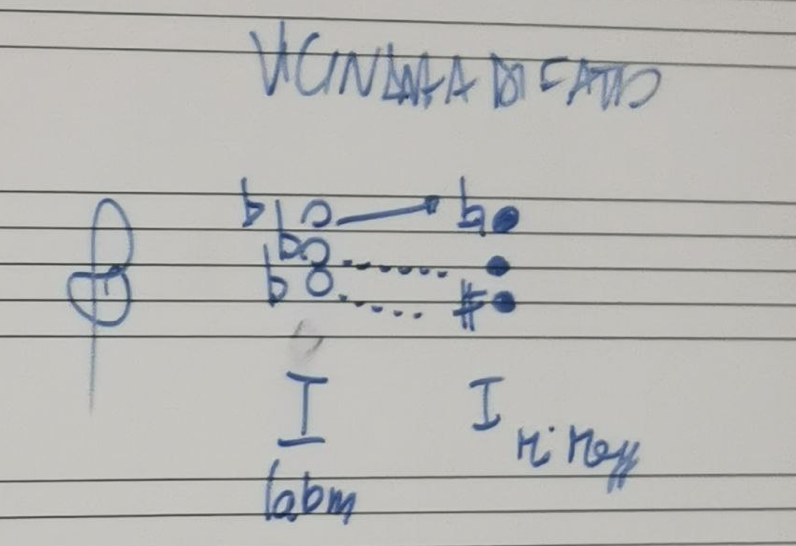 VICINANZA DI FATTO
I I
labm Mi Magg